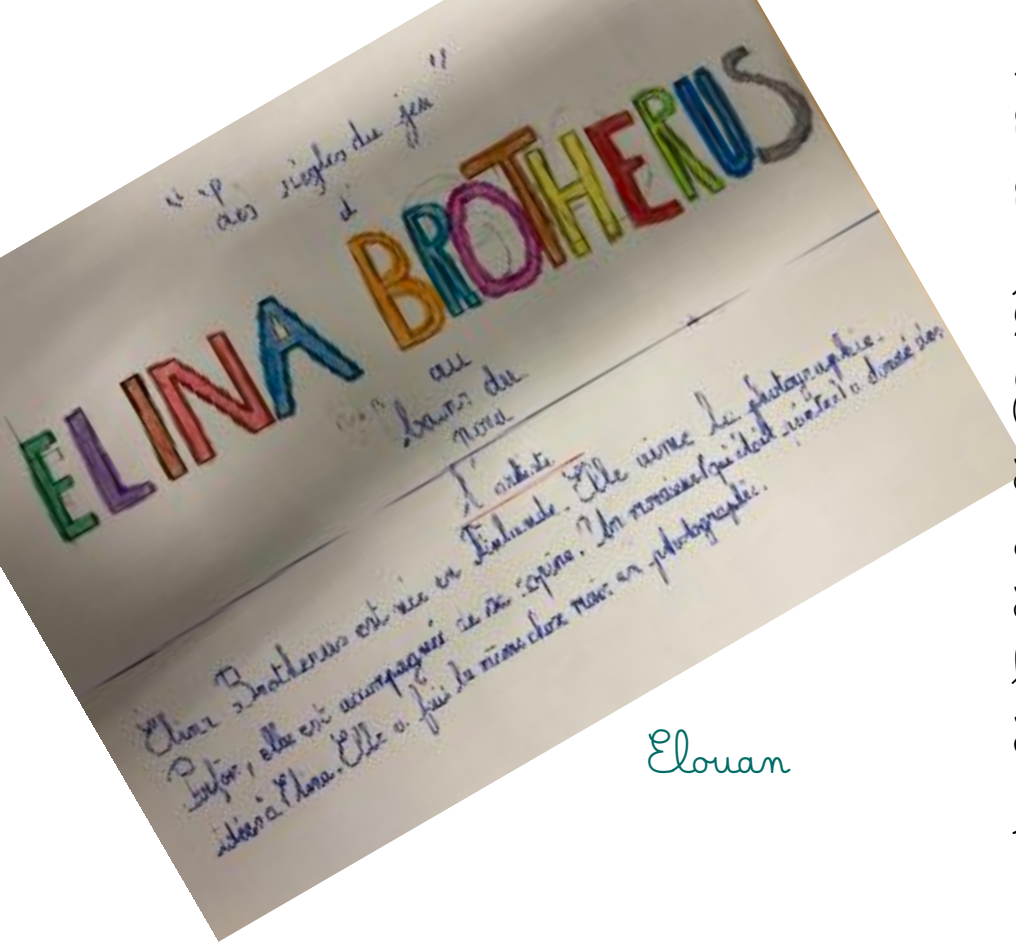 "Les règles du jeu"
d'
ELINA BROTHERUS
au
bains du
nord
L'artiste
Elina Brotherus est née en Finlande. Elle aime la photographie.
Parfois, elle est accompagnée de sa copine. Un monsieur qui était peintre a donné des
idées à Elina. Elle a fait la même chose mais en photographie.
Elouan